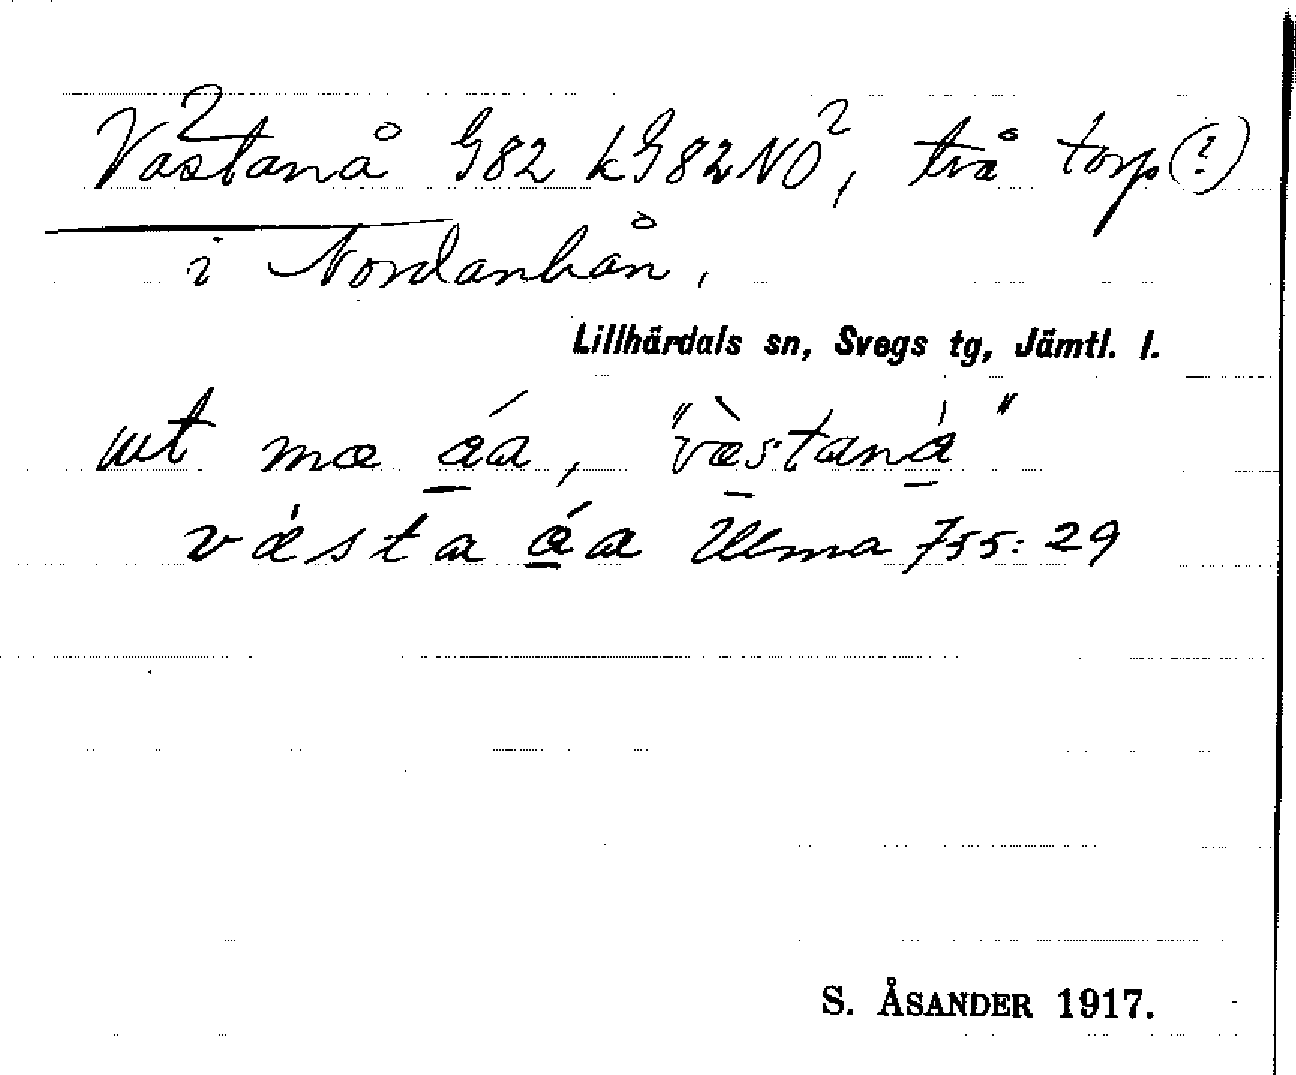 Västanå G82 kG82NO², två torp(?)
i Nordanhån,
Lillhärdals sn, Svegs tg, Jämtl. l.
ut mæ åa, "væ̀staná"
vǽsta åá a Ulma 755:29
S. ÅSANDER 1917.